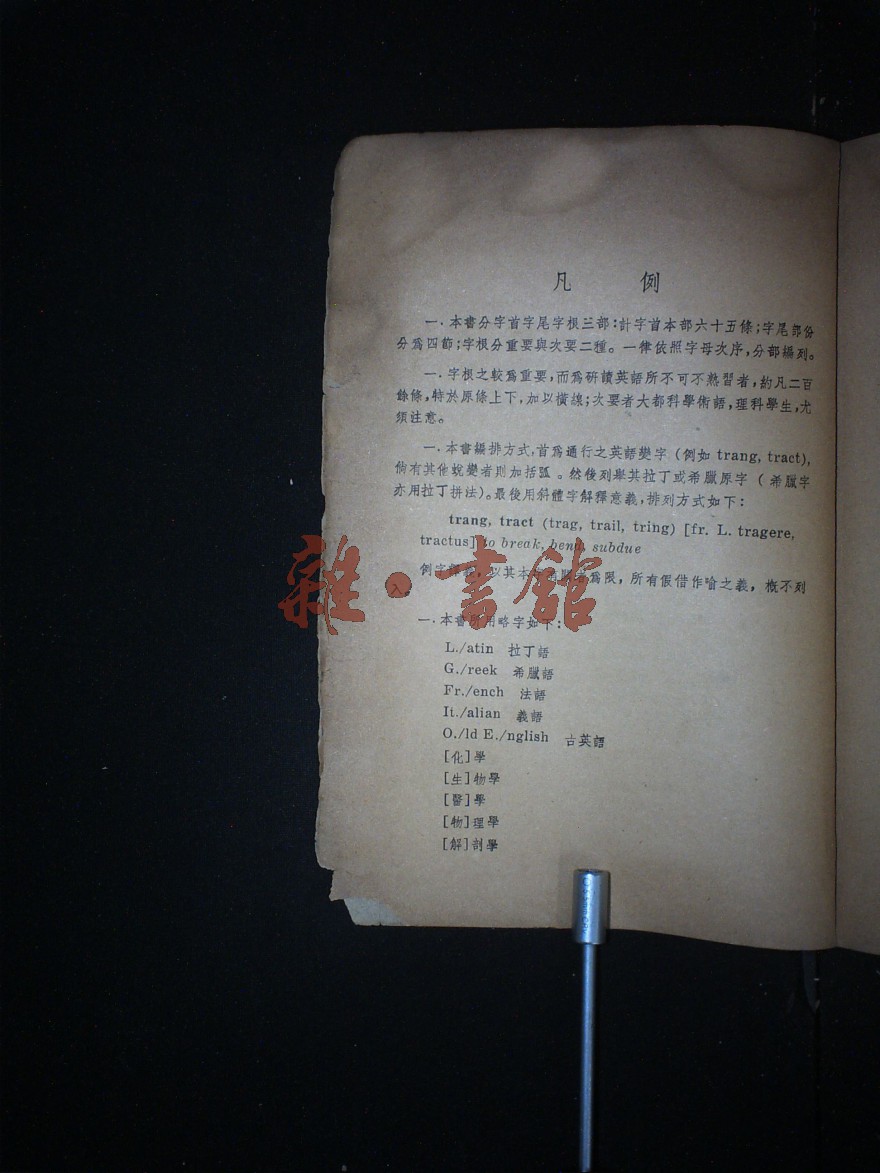 凡 例
一．本書分字首字尾字根三部：計字首本部六十五條；字尾部份
分爲四節；字根分重要與次要二種。一律依照字母次序，分部編列。
一．字根之較爲重要，而爲研讀英語所不可不熟習者，約凡二百
餘條，特於原條上下，加以橫線；次要者大都科學術語，理科學生，尤
須注意。
一．本書編排方式，首爲通行之英語變字（例如 trang, tract），
倘有其他蛻變者則加括弧。然後列舉其拉丁或希臘原字（希臘字
亦用拉丁拼法）。最後用斜體字解釋意義，排列方式如下：
trang, tract (trag, trail, tring) [fr. L. tragere,
tractus] to break, bend, subdue
例字釋義，以其本 者爲限，所有假借作喻之義，槪不列
入。
一．本書所用略字如下：
L./atin 拉丁語
G./reek 希臘語
Fr./ench 法語
It./alian 義語
O./ld E./nglish 古英語
[化]學
[生]物學
[醫]學
[物]理學
[解]剖學
雜·書館